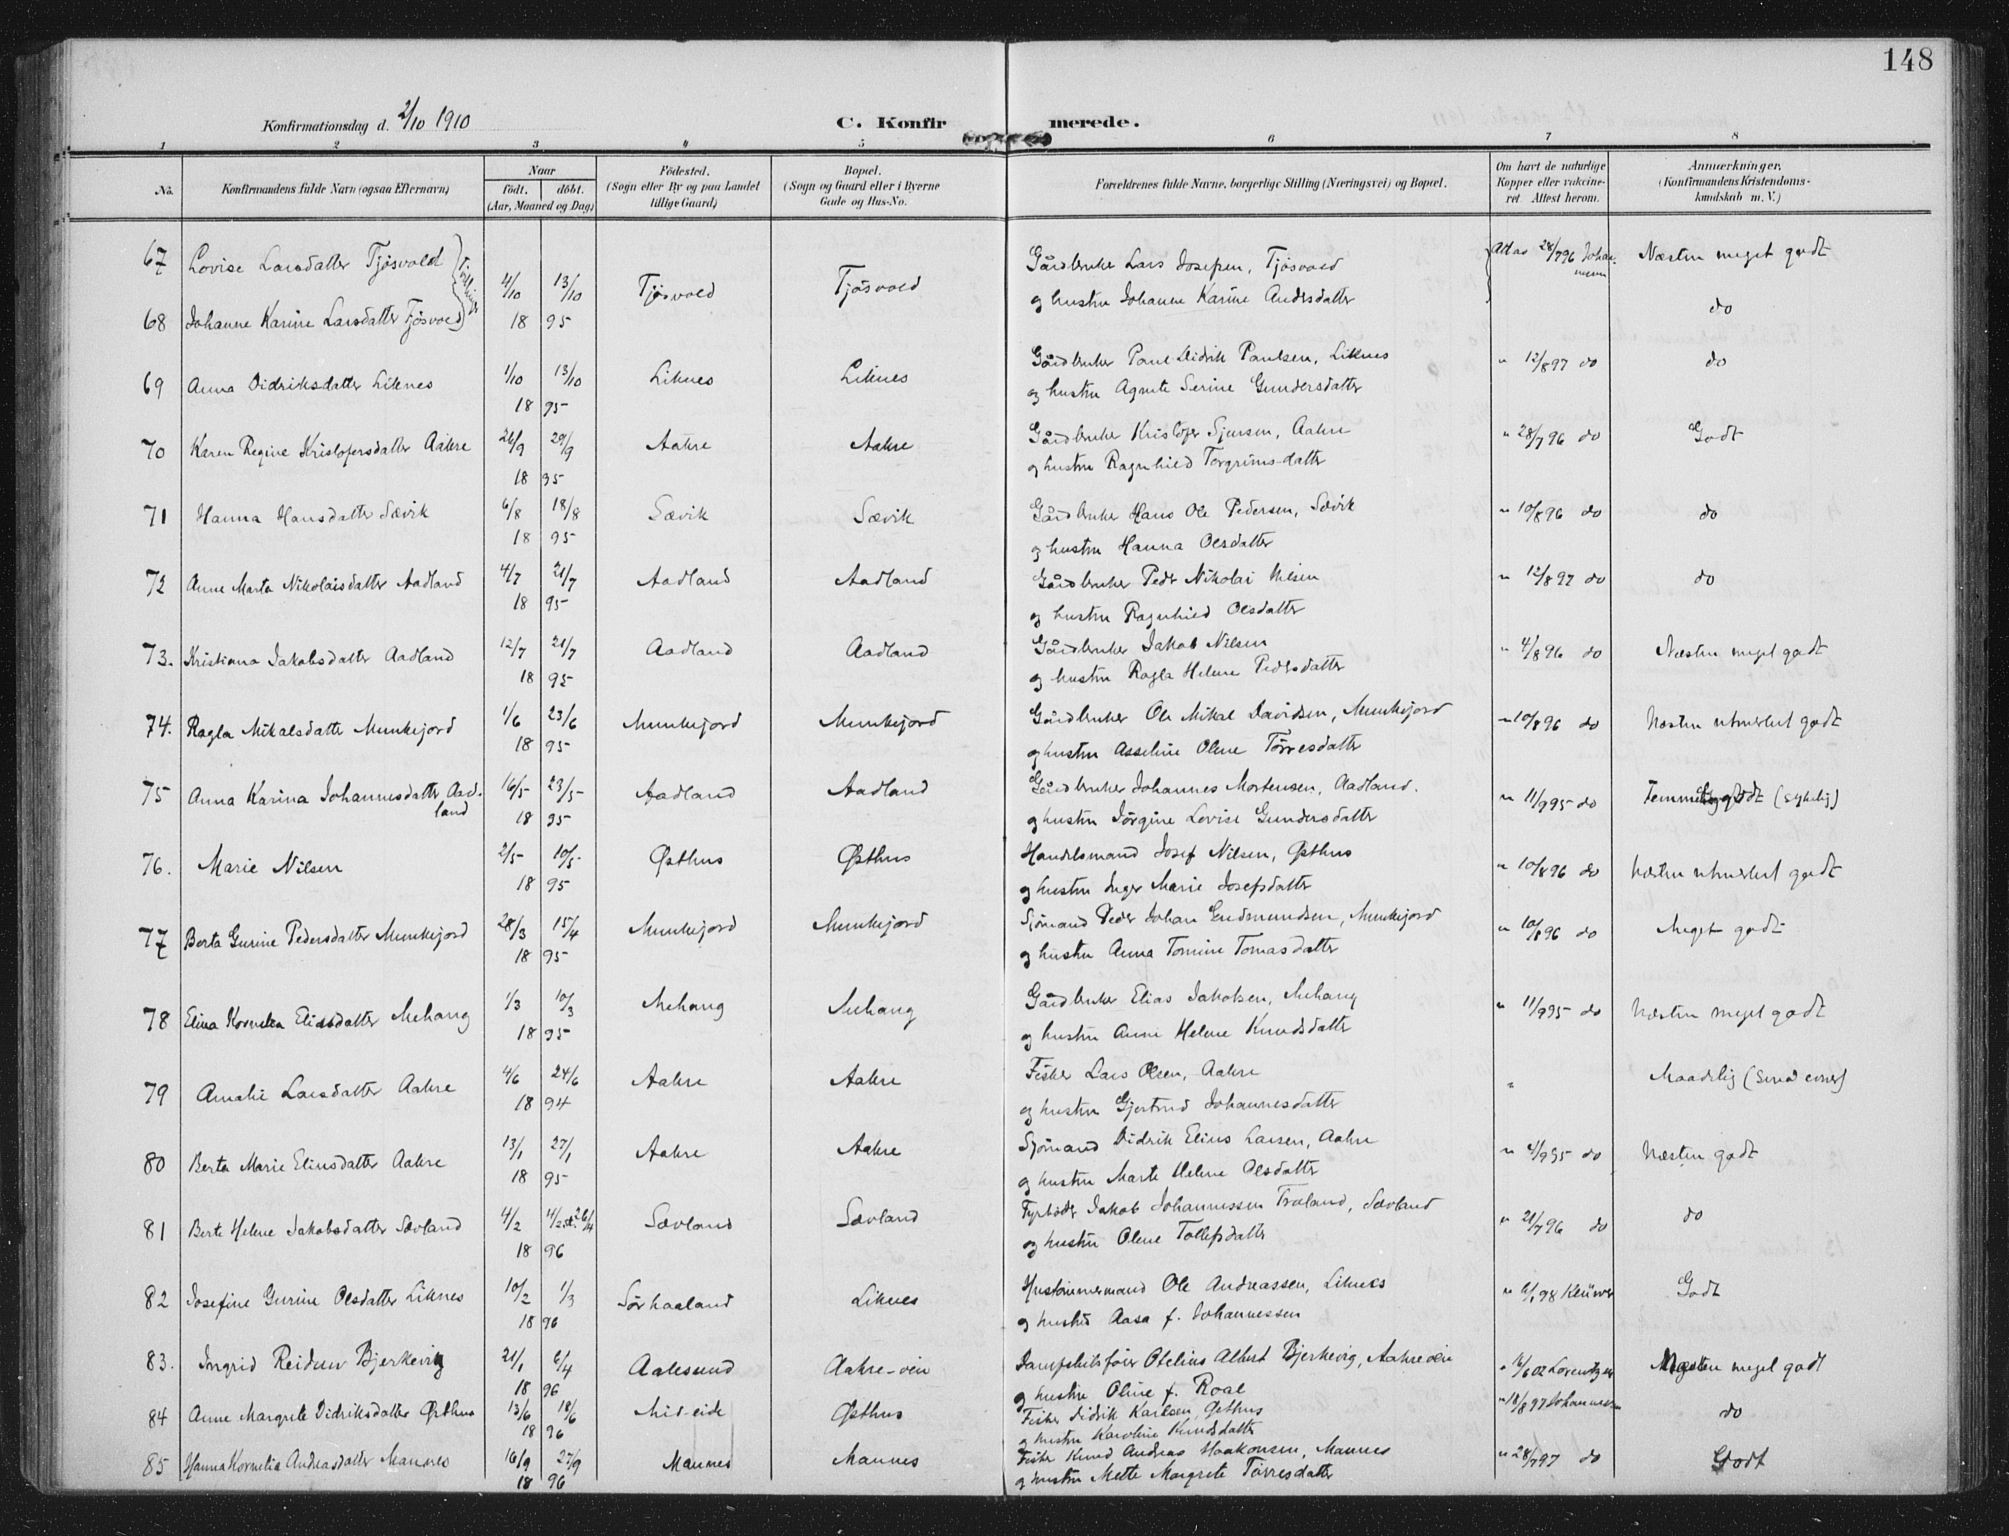 148
Konfirmationsdag d. 2/10 1910 C. Konfirmerede.
1 2 3 4 5 6 7 8
No. Konfirmandens fulde Navn (ogsaa Efternavn) Naar født. døbt. (Aar, Maaned og Dag) Fødested. (Sogn eller By og paa Landet tillige Gaard) Bopæl. (Sogn og Gaard eller i Byerne Gade og Hus-No. Forældrenes fulde Navne, borgerlige Stilling (Næringsvei) og Bopæl. Om havt de naturlige Kopper eller vakcineret. Attest herom. Anmærkninger. (Konfirmandens Kristendomskundskab m. V.)
67 Lovise Larsdatter Tjøsvold Gårdbruker Lars Josefsen, Tjøsvold Att av 28/796 Næsten meget godt
4/10 13/10 Tjøsvold Tjøsvold
og hustru Johanne Karine Andersdatter
68 Johanne Karine Larsdatter Tjøsvold 18 95 do
69 Anna Didriksdatter Liknes 1/10 13/10 Liknes Liknes Gårdbruker Paul Didrik Paulsen, Liknes " 12/897 do do
18 95 og hustru Agnete Serine Gundersdatter
70 Karen Regine Kristofersdatter Aakre 26/9 29/9 Aakre Aakre Gårdbruker Kristofer Sjursen, Aakre " 28/796 do Godt
18 95 og hustru Ragnhild Torgrimsdatter
71 Hanna Hansdatter Sævik 6/8 18/8 Sævik Sævik Gårdbruker Hans Ole Pedersen, Sævik " 10/896 do do
18 95 og hustru Hanna Olsdatter
72 Anne Marta Nikolaisdatter Aadland 4/7 21/7 Aadland Aadland Gårdbruker Peder Nikolai Nilsen " 12/897 do do
18 95 og hustru Ragnhild Olsdatter
73. Kristiana Jakobsdatter Aadland 12/7 21/7 Aadland Aadland Gårdbruker Jakob Nilsen " 4/896 do Næsten meget godt
18 95 og hustru Ragla Helene Pedersdatter
74. Ragla Mikalsdatter Munkejord 1/6 23/6 Munkejord Munkejord Gårdbruker Ole Mikal Davidsen, Munkejord " 10/896 do Næsten utmerket godt
18 95 og hustru Asseline Oline Tørresdatter
75 Anna Karina Johannesdatter Aadland 16/5 23/5 Aadland Aadland Gårdbruker Johannes Mortensen, Aadland. " 11/995 do Temmelig godt (sykelig)
18 95 og hustru Jørgine Lovise Gundersdatter
76. Marie Nilsen 2/5 10/5 Østhus Østhus Handelsmand Josef Nilsen, Østhus " 10/896 do Næsten utmerket godt
18 95 og hustru Inger Marie Josefsdatter
77 Berta Gurine Pedersdatter Munkejord 28/3 15/4 Munkejord Munkejord Sjømand Peder Johan Gudmundsen, Munkejord " 10/896 do Meget godt
18 95 og hustru Anna Tomine Tomasdatter
78 Elina Kornelia Eliasdatter Mehaug 1/3 10/3 Mehaug Mehaug Gårdbruker Elias Jakobsen, Mehaug " 11/995 do Næsten meget godt
18 95 og hustru Anne Helene Knudsdatter
79 Amalie Larsdatter Aakre 4/6 24/6 Aakre Aakre Fisker Lars Olsen, Aakre " Maadelig (små evner)
18 94 og hustru Gjertrud Johannesdatter
80 Berta Marie Eliusdatter Aakre 13/1 27/1 Aakre Aakre Sjømand Didrik Elius Larsen, Aakre " 4/995 do Næsten godt
18 95 og hustru Marte Helene Olsdatter
81 Berte Helene Jakobsdatter Sævland 4/2 26/4 Sævland Sævland Fyrbøter Jakob Johannessen Træland, Sævland " 21/796 do do
18 96 og hustru Olene Tollefsdatter
82 Josefine Gurine Olsdatter Liknes 10/2 1/3 Sørhaaland Liknes Hustømmermand Ole Andreassen, Liknes " 6/198 Klüwer Godt
18 96 og hustru Aasa f. Johannessen
83. Ingrid Reidun Bjerkevig 21/1 6/4 Aalesund Aakre-vein Dampskibsfører Otelius Albert Bjerkevig, Aakreveien " 16/602 Lorentzen Næsten meget godt
18 96 og hustru Oline f. Roal
84 Anne Margrete Didriksdatter Østhus 13/6 18/6 Mid-eide Østhus Fisker Didrik Karlsen, Østhus " 18/897 Johannessen do
18 96 og hustru Karoline Knudsdatter
85 Hanna Kornelia Andreasdatter Mannes 16/9 27/9 Mannes Mannes Fisker Knud Andreas Haakonsen, Mannes " 28/797 do Godt
18 96 og hustru Mette Margrete Tørresdatter